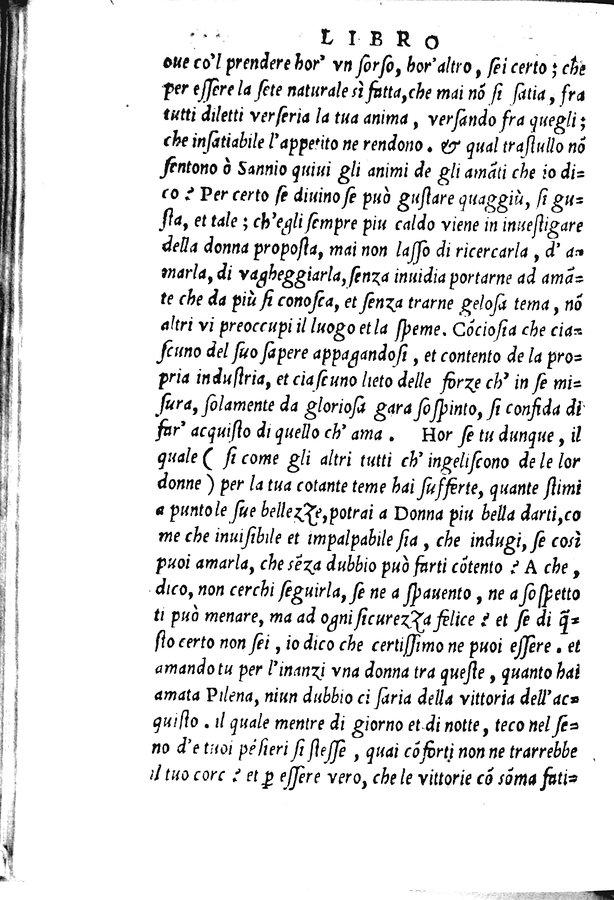 LIBRO
oue co'l prendere hor' vn ſorſo, hor'altro, ſei certo; che
per eſſere la ſete naturale sì fatta, che mai nõ ſi ſatia, fra
tutti diletti verſeria la tua anima, verſando fra quegli;
che inſatiabile l'appetito ne rendono. & qual traſtullo nõ
ſentono ò Sannio quiui gli animi de gli amãti che io di=
co? Per certo ſe diuino ſe può guſtare quaggiù, ſi gu=
ſta, et tale; ch'egli ſempre piu caldo viene in inueſtigare
della donna propoſta, mai non laſſo di ricercarla, d'a=
marla, di vagheggiarla, ſenza inuidia portarne ad amã=
te che da più ſi conoſca, et ſenza trarne geloſa tema, nõ
altri vi preoccupi il luogo et la ſpeme. Cõcioſia che cia=
ſcuno del ſuo ſapere appagandoſi, et contento de la pro=
pria induſtria, et ciaſcuno lieto delle forze ch'in ſe mi=
ſura, ſolamente da glorioſa gara ſoſpinto, ſi confida di
far' acquiſto di quello ch'ama. Hor ſe tu dunque, il
quale (ſi come gli altri tutti ch'ingeliſcono de le lor
donne) per la tua cotante teme hai ſufferte, quante ſtimi
a punto le ſue bellezze, potrai a Donna piu bella darti, co
me che inuiſibile et impalpabile ſia, che indugi, ſe così
puoi amarla, che sẽza dubbio può farti cõtento? A che,
dico, non cerchi ſeguirla, ſe ne a ſpauento, ne a ſoſpetto
ti può menare, ma ad ogni ſicurezza felice? et ſe di q̃=
ſto certo non ſei, io dico che certiſſimo ne puoi eſſere. et
amando tu per l'inanzi vna donna tra queſte, quanto hai
amata Pilena, niun dubbio ci ſaria della vittoria dell'ac=
quiſto. il quale mentre di giorno et di notte, teco nel ſe=
no d'e tuoi pẽſieri ſi ſteſſe, quai cõforti non ne trarrebbe
il tuo core? et ꝑ eſſere vero, che le vittorie cõ sõma fati=